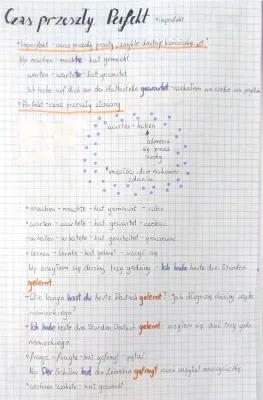 Czas przeszły Perfekt + imperfekt
• Imperfekt - czas przeszły prosty, zwykle dostaje końcówkę "et"
Np machen - machte - hat gemacht
warten - wartete - hat gewartet
Ich habe auf dich an der Haltestelle gewartet - czekałam na ciebie na
• Perfekt - czas przeszły złożony
haben
odmienia się przez osoby
zdania
• machen - machte - hat gemacht - robić
• warten - wartete - hat gewartet - czekać
• arbeiten - arbeitete - hat gearbeitet - pracować
• lernen - lernte - hat gelernt - uczyć się
Np. uczyłem się dzisiaj trzy godziny - Ich habe heute drei Stunden
gelernt.
• Wie lange hast du heute Deutsch gelernt? - Jak długo się dzisiaj uczyłeś
niemieckiego?
• Ich habe heute drei Stunden Deutsch gelernt - uczyłem się dziś trzy godz.
niemieckiego.
• frage - fragte - hat gefragt - pytać
Np. Der Schüler hat die Lehrerin gefragt - uczeń zapytał nauczycielkę
• wohnen - wohnte - hat gewohnt